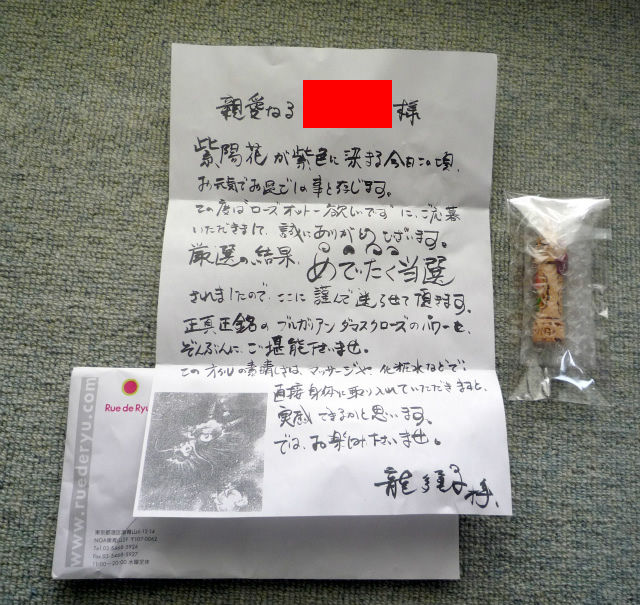 親愛なる
様
紫陽花が紫色に染まる今日この頃、
お元気でお過ごしの事と存じます。
この度は"ローズオットー欲しいです"に、ご応募
いただきまして、誠にありがとうございます。
厳選の結果、めでたく当選
されましたので、ここに謹んで送らせて頂きます。
正真正銘のブルガリアンダマスクローズのパワーを、
ぞんぶんに、ご堪能下さいませ。
このオイルの素晴しさは、マッサージや、化粧水などで、
直接身体に取り入れていただきますと、
実感できるかと思います。
では、お楽しみ下さいませ。
龍
www.ruederyu.com
Rue de Ryu
東京都港区南青山6-12-14
NOA南青山 〒107-0062
Tel 03-5468-5926
Fax 03-5468-5927
11:00〜20:00 水曜定休